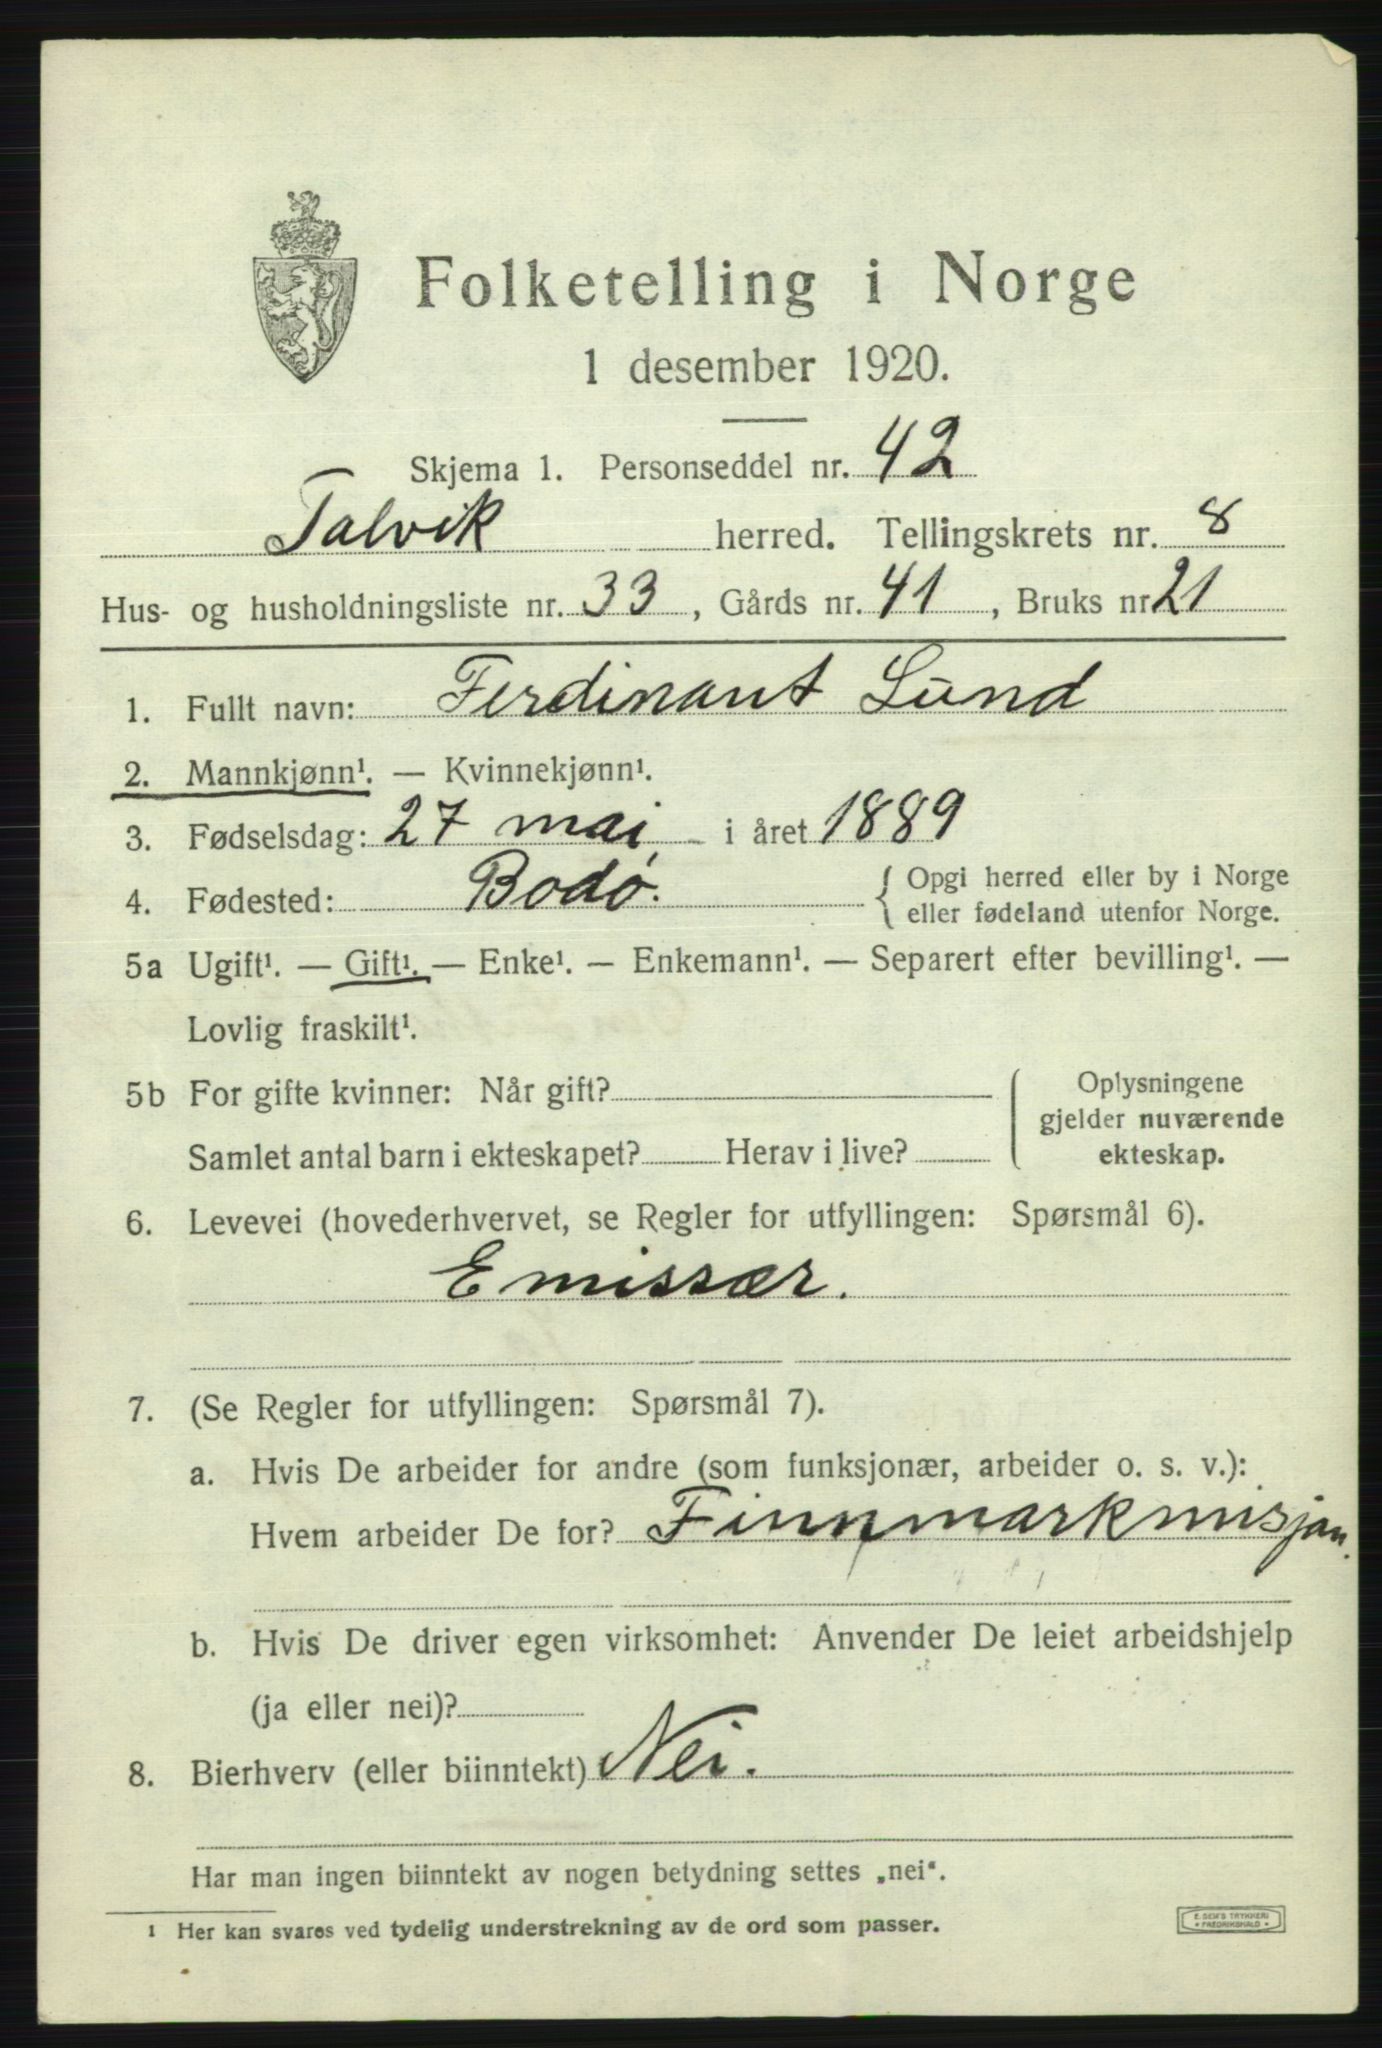 Folketelling i Norge
1 desember 1920.
Skjema 1. Personseddel nr. 42
Talvik herred. Tellingskrets nr. 8
Hus- og husholdningsliste nr. 33, Gårds nr. 41, Bruks nr. 21
1. Fullt navn: Ferdinant Lund
2. Mannkjønn¹. — Kvinnekjønn¹.
3. Fødselsdag: 27 mai i året 1889
4. Fødested: Bodø. { Opgi herred eller by i Norge
eller fødeland utenfor Norge.
5a Ugift¹. — Gift¹. — Enke¹. — Enkemann¹. — Separert efter bevilling¹. —
Lovlig fraskilt¹.
5b For gifte kvinner: Når gift? Oplysningene
gjelder nuværende
Samlet antal barn i ekteskapet? Herav i live? ekteskap.
6. Levevei (hovederhvervet, se Regler for utfyllingen: Spørsmål 6).
Emissær.
7. (Se Regler for utfyllingen: Spørsmål 7).
a. Hvis De arbeider for andre (som funksjonær, arbeider o. s. v.):
Hvem arbeider De for? Finnmarkmisjan.
b. Hvis De driver egen virksomhet: Anvender De leiet arbeidshjelp
(ja eller nei)?
8. Bierhverv (eller biinntekt) Nei.
Har man ingen biinntekt av nogen betydning settes „nei“.
¹ Her kan svares ved tydelig understrekning av de ord som passer.
E. SEM'S TRYKKERI
* FREDRIKSHALD *